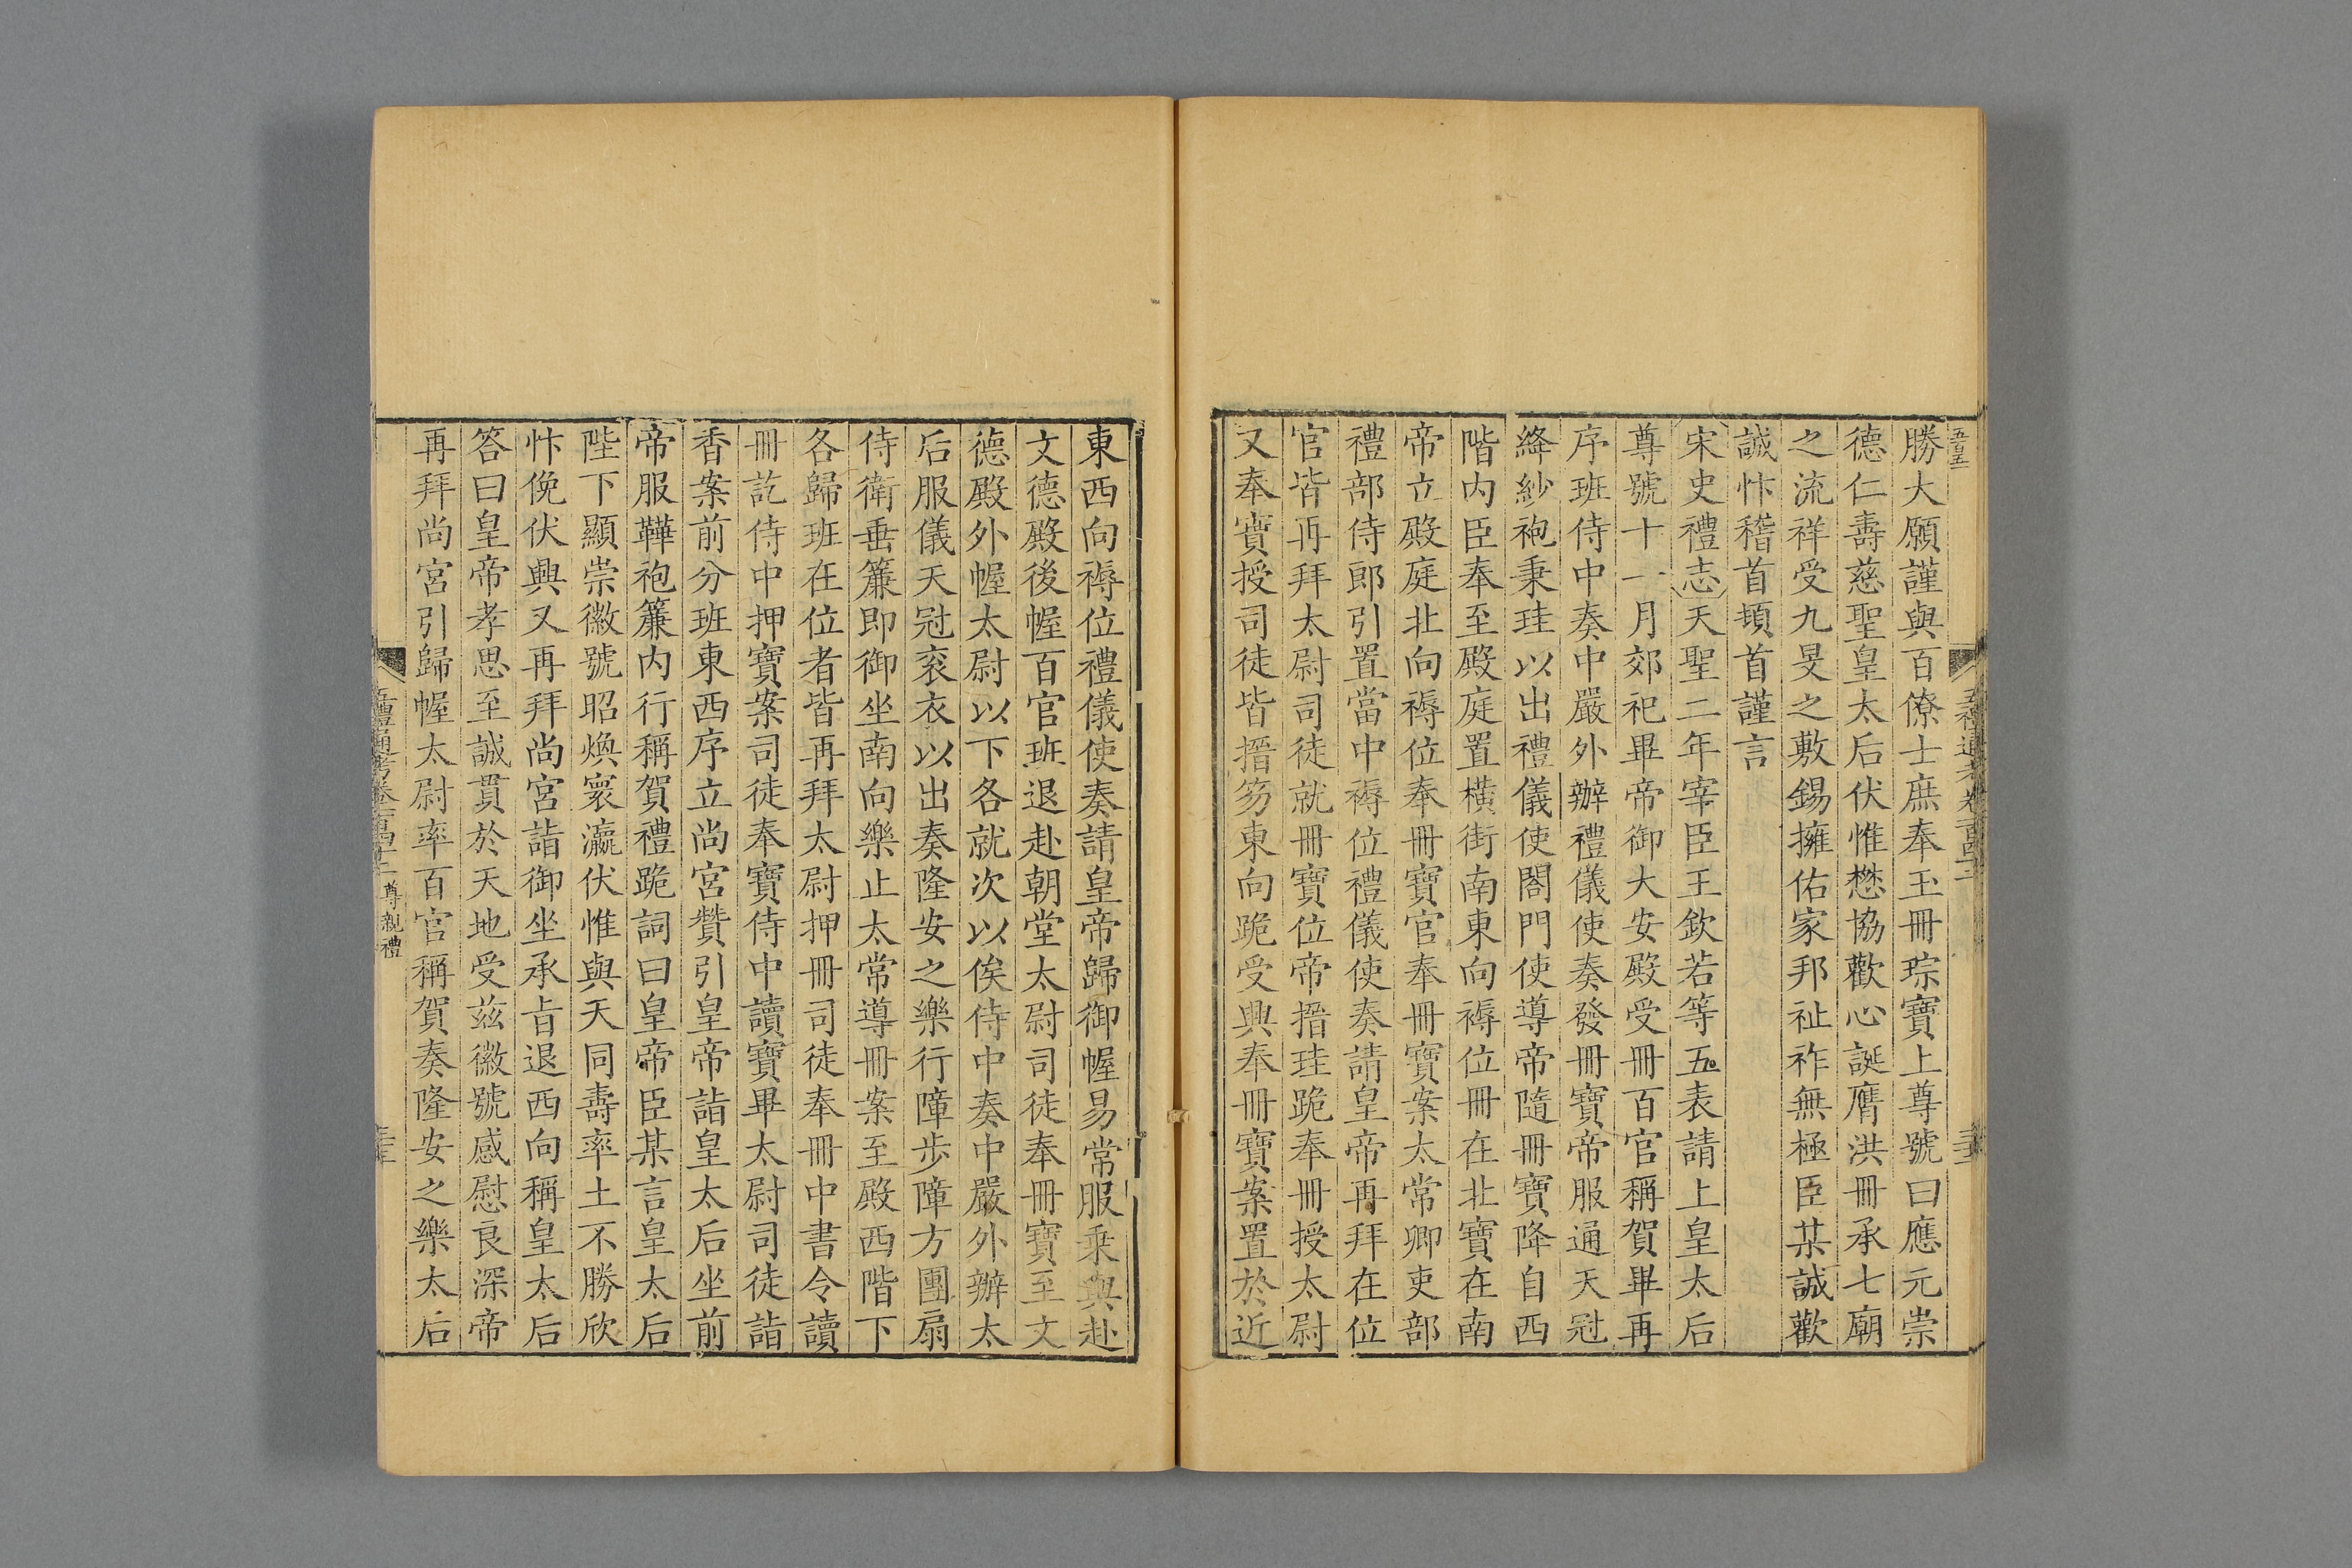 勝大願謹與百僚士庶奉玉冊琮寶上尊號曰應元崇
德仁壽慈聖皇太后伏惟懋協歡心誕膺洪冊承七廟
之流祥受九旻之敷錫擁佑家邦祉祚無極臣某誠歡
誠忭稽首頓首謹言
宋史禮志天聖二年宰臣王欽若等五表請上皇太后
尊號十一月郊祀畢帝御大安殿受冊百官稱賀畢再
序班侍中奏中嚴外辦禮儀使奏發冊寶帝服通天冠
絳紗袍秉珪以出禮儀使閤門使導帝隨冊寶降自西
階內臣奉至殿庭置橫街南東向褥位冊在北寶在南
帝立殿庭北向褥位奉冊寶官奉冊寶案太常卿吏部
禮部侍郎引置當中褥位禮儀使奏請皇帝再拜在位
官皆再拜太尉司徒就冊寶位帝搢珪跪奉冊授太尉
又奉寶授司徒皆搢笏東向跪受興奉冊寶案置於近
東西向褥位禮儀使奏請皇帝歸御幄易常服乘輿赴
文德殿後幄百官班退赴朝堂太尉司徒奉冊寶至文
德殿外幄太尉以下各就次以俟侍中奏中嚴外辦太
后服儀天冠袞衣以出奏隆安之樂行障步障方團扇
侍衛垂簾即御坐南向樂止太常導冊案至殿西階下
各歸班在位者皆再拜太尉押冊司徒奉冊中書令讀
冊訖侍中押寶案司徒奉寶侍中讀寶畢太尉司徒詣
香案前分班東西序立尚宮贊引皇帝詣皇太后坐前
帝服鞾袍簾內行稱賀禮跪詞曰皇帝臣某言皇太后
陛下顯崇徽號昭煥寰瀛伏惟與天同壽率土不勝欣
忭俛伏興又再拜尚宮詣御坐承旨退西向稱皇太后
答曰皇帝孝思至誠貫於天地受茲徽號感慰良深帝
再拜尚宮引歸幄太尉率百官稱賀奏隆安之樂太后
尊親禮